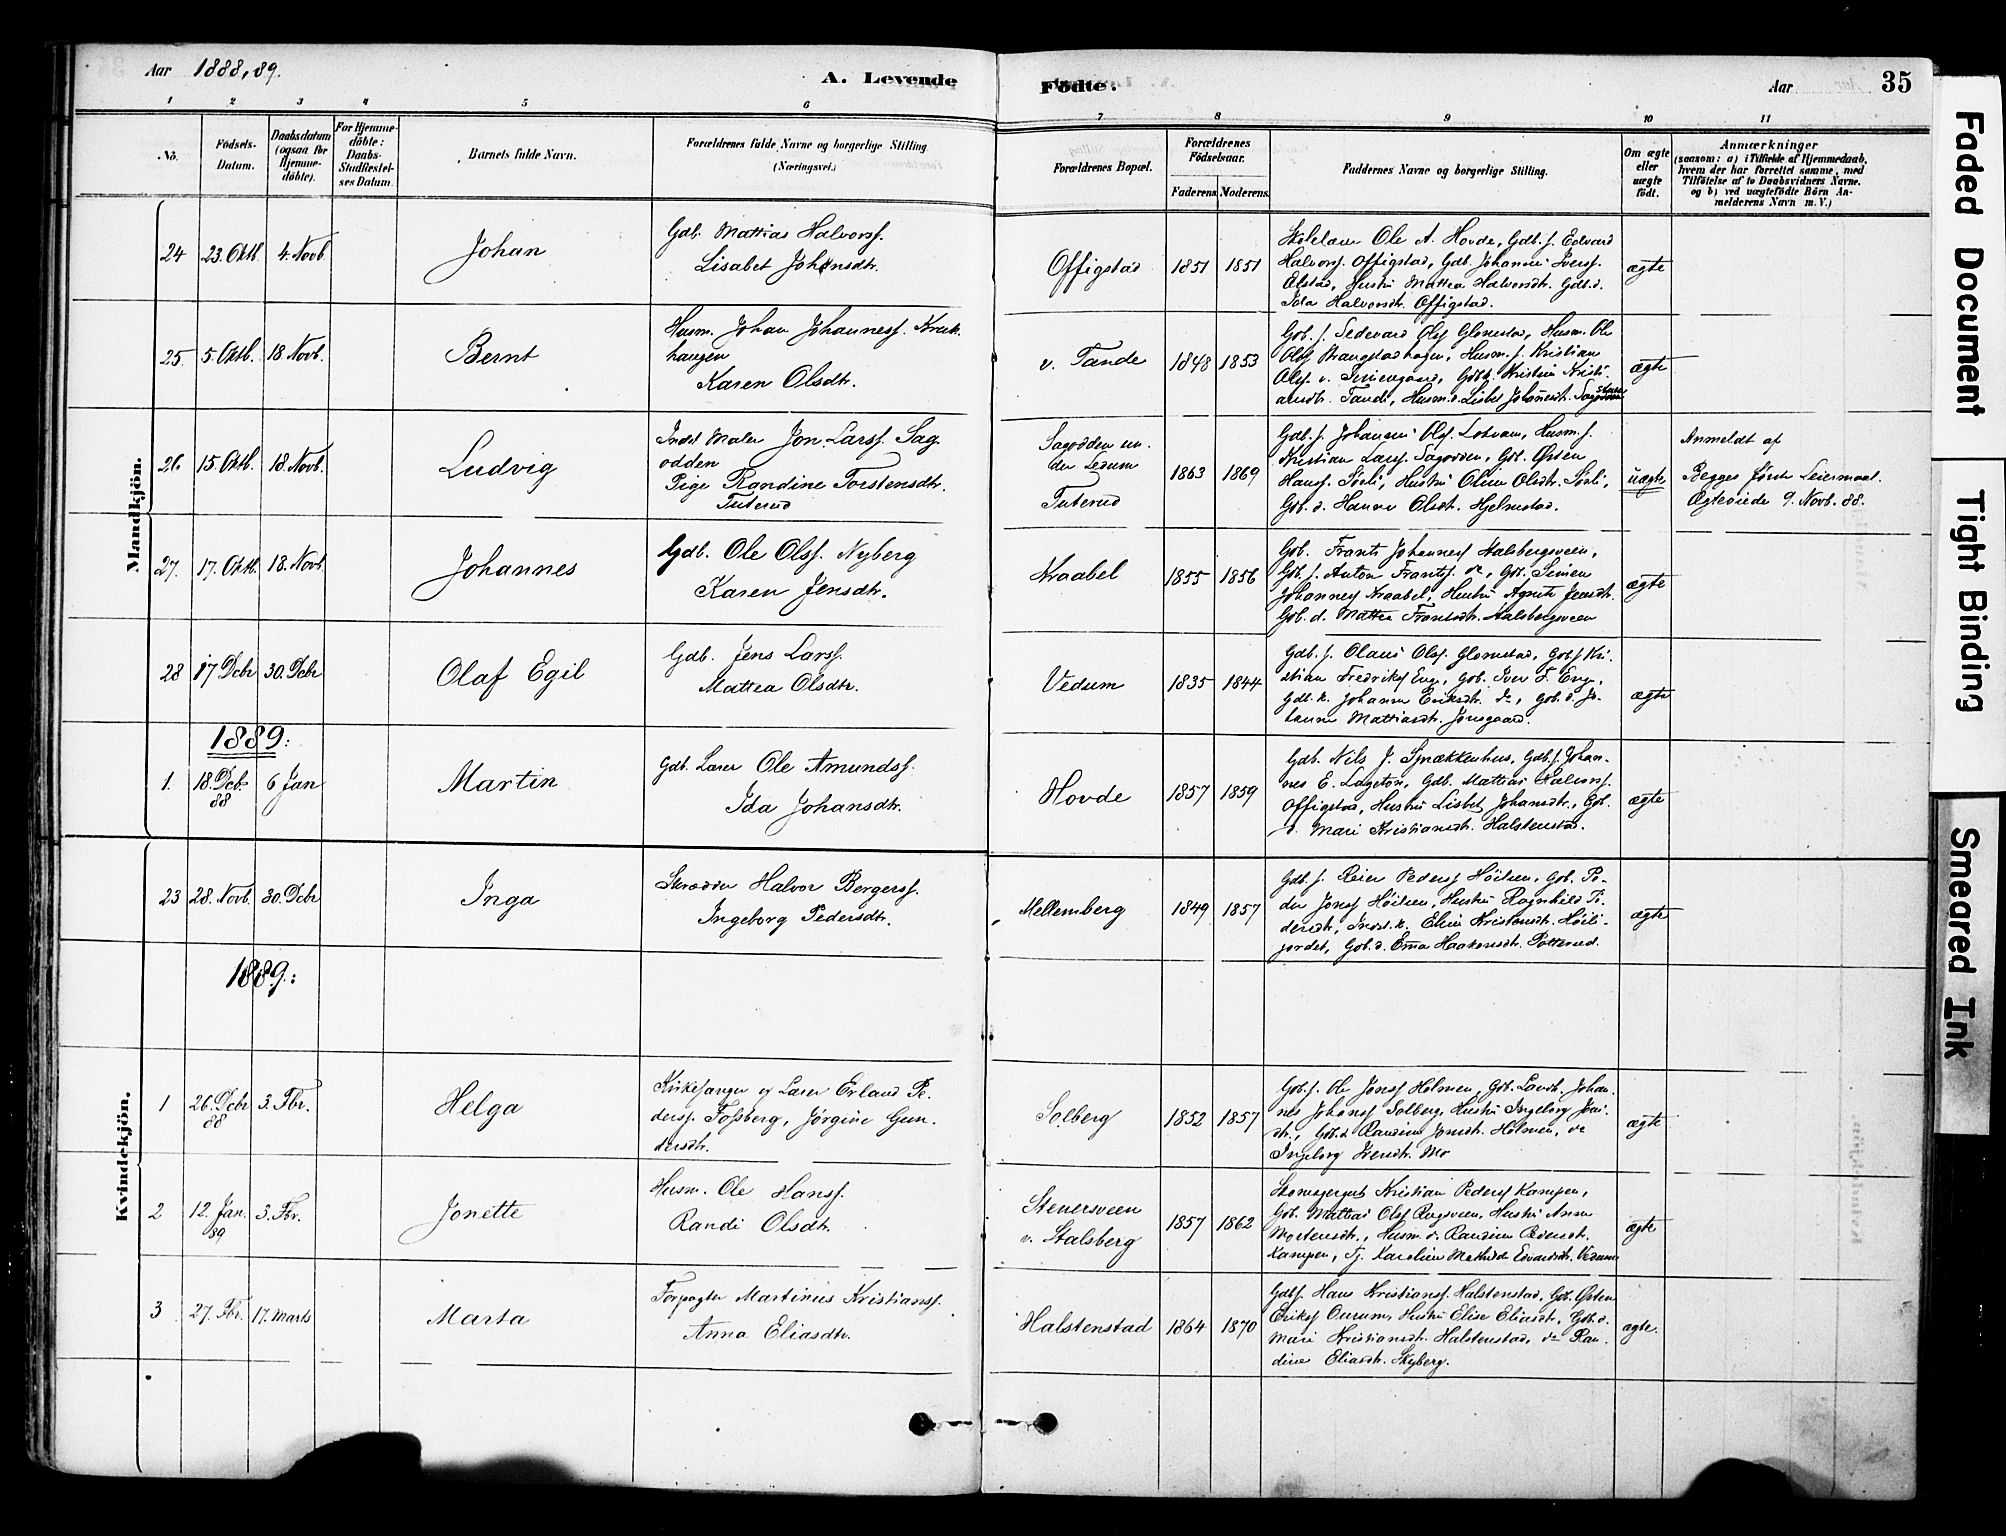 Aar 1888, 89.
A. Levende
Fødte.
Aar
35
1 2 3 4 5 6 7 8 9 10 11
No.
Fødsels-Datum.
Daabsdatum (ogsaa for Hjemmedøbte).
For Hjemmedøbte: Daabs-Stadfæstelses Datum.
Barnets fulde Navn.
Forældrenes fulde Navne og borgerlige Stilling (Næringsvei.)
Forældrenes Bopæl.
Forældrenes Fødselsaar.
Faderens
Moderens
Faddernes Navne og borgerlige Stilling.
Om ægte eller uægte født.
Anmærkninger
(saasom: a) i Tilfælde af Hjemmedaab,
hvem der har forrettet samme, med
Tilføielse af to Daabsvidners Navne.
og b) ved uægtefødte Børn An-
melderens Navn m. V.)
Mandkjön.
24 23. Oktb. 4. Novb. Johan
Gdb. Mattias Halvorss.
Lisabet Johansdtr.
Offigstad 1851 1851
Ole A. Hovde, Gdb. s. Edvard
Halvorss. Offigstad, Gdb. Johannes Iverss.
Elstad, Hustru Mattea Halvorsdtr. Gdb.d.
Ida Halvorsdtr. Offigstad.
ægte
25 5. Oktb. 18 Novb. Bernt
Husm. Johan Johanness.
haugen
Karen Olsdtr.
v. Tande 1848 1853
Olss. Glomstad, Husm. Ole
Olss. Husm. s. Kristian
Olss. v. Kristine Kristi-
ansdtr. Tande, Husm.d. Lisbet
ægte
26 15. Oktb. 18. Novb. Ludvig
Inds. Maler Jon Larss. Sag-
odden
Pige Randine Torstensdtr.
Tuterud
Sagodden un-
der Vedum
Tuterud
1863 1869
Gdb. s. Johannes Olss. Husm. s.
Kristian Larss. Sagodden, Gdb. Østen
Hanss. Sørli, Hustru Oline Olsdtr. Sørli,
Gdb. d. Hanna Olsdtr. Hjelmstad.
uægte
Anmeldt af
Begges første Leiermaal.
Ægteviede 9. Novb. 88.
27. 17. Oktb. 18. Novb. Johannes
Gdb. Ole Olss. Nyberg
Karen Jensdtr.
Kraabel 1855 1856
Gdb. Frants Johanness. Stalsbergsveen,
Gdb. s. Anton Frantss. do, Gdb. Simen
Johanness. Kraabel, Hustru Agnete Jensdtr.
Gdb. d. Mattea Frantsdtr. Stalsbergsveen
ægte
28 17 Decbr 30. Decbr Olaf Egil
Gdb. Jens Larss.
Mattea Olsdtr.
Vedum 1835 1844
Gdb. s. Olaus Olss. Glomstad, Gdb. s. Kri-
stian Fredrikss. Enge, Gdb. Iver F. Enge,
Gdb. k. Johanne Eriksdtr. do, Gdb. d. Jo-
hanne Mattiasdtr. Jonsgaard.
ægte
1889:
1. 18. Decb. 88 6 Jan Martin
Gdb. Lærer Ole Amundss.
Ida Johansdtr.
Hovde 1857 1859
Gdb. Nils J. Snækkenhus, Gdb. s. Johan-
nes E. Lageton, Gdb. Mattias Halvorss.
Offigstad, Hustru Lisbet Johansdtr., Gdb.
d. Mari Kristiansdtr. Halstenstad.
ægte
Kvindekjön.
23 28. Novb. 30 Decbr Inga
Skrædder Halvor Bergerss.
Ingeborg Pedersdtr.
Mellemberg 1849 1857
Gdb. s. Reier Pederss. Høilien, Gdb. Pe-
der Jonss. Høilien, Hustru Ragnhild Pe-
dersdtr, Inds. k. Eline Kristensdtr. Høili-
jordet, Gdb. d. Emma Haakensdtr. Potterud.
ægte
1889.:
1 26. Decbr 88 3. Fbr. Helga
Kirkesanger og Lærer Erland Pe-
derss. Fossberg, Jørgine Gun-
dersdtr.
Solberg 1852 1857
Gdb. s. Ole Jonss. Holmen, Gdb. Johan-
nes Johanss. Solberg, Hustru Ingeborg
dtr., Gdb.d. Randine Jonsdtr. Holmen, do
Ingeborg Iversdtr. Mo
ægte
2 12. Jan. 89 3. Fbr. Jonette
Husm. Ole Hanss.
Randi Olsdtr.
Stenersveen
v. Stalsberg
1857 1862
Kristian Pederss. Kampen,
Gdb. Mattias Olss. Rugsveen, Hustru Anne
Mortensdtr., Husm. d. Randine Pedersdtr.
Kampen, Tj. Karoline Mathilde Edvardsdtr. Vedum
ægte
3 27. Fbr. 17. Marts Marta
Forpagter Martinus Kristianss.
Anna Eliasdtr.
Halstenstad 1864 1870
Gdbs. Hans Kristianss. Halstenstad, Gdb. Østen
Erikss. Hustru Elise Eliasdtr., Gdb. d.
Mari Kristiansdtr. Halstenstad, do Ran-
dine Eliasdtr. Skyberg.
ægte.
Faded Document
Tight Binding
Smeared Ink